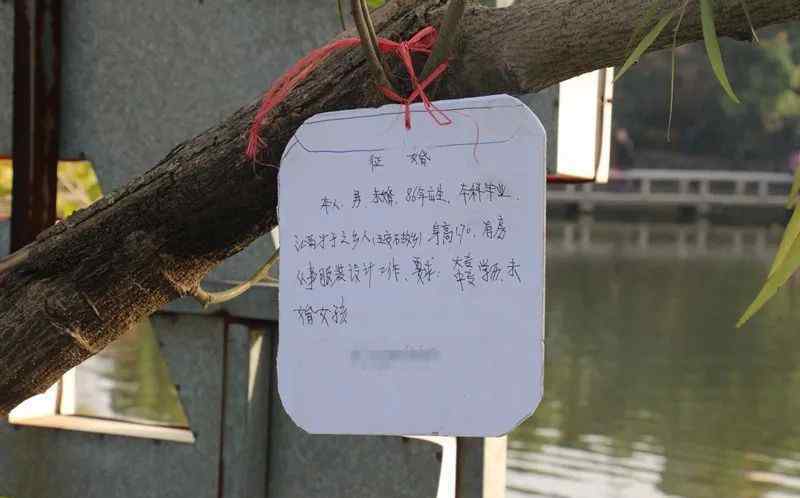 征 婚
本人: 男 未婚, 86年出生, 本科毕业,
江西才子之乡人(王安石故乡) 身高170, 有房
从事服装设计工作, 要求: 大专 中专 学历, 未
婚女孩